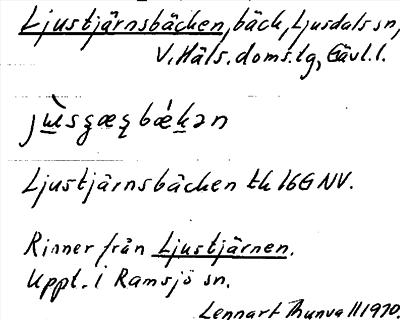 Ljustjärnsbäcken, bäck, Ljusdals sn,
V. Häls. doms.lg, Gävl.l.
Ljustjärnsbäcken tk 16G NV.
Rinner från Ljustjärnen.
Uppt. i Ramsjö sn.
Lennart Thunvall 1970.